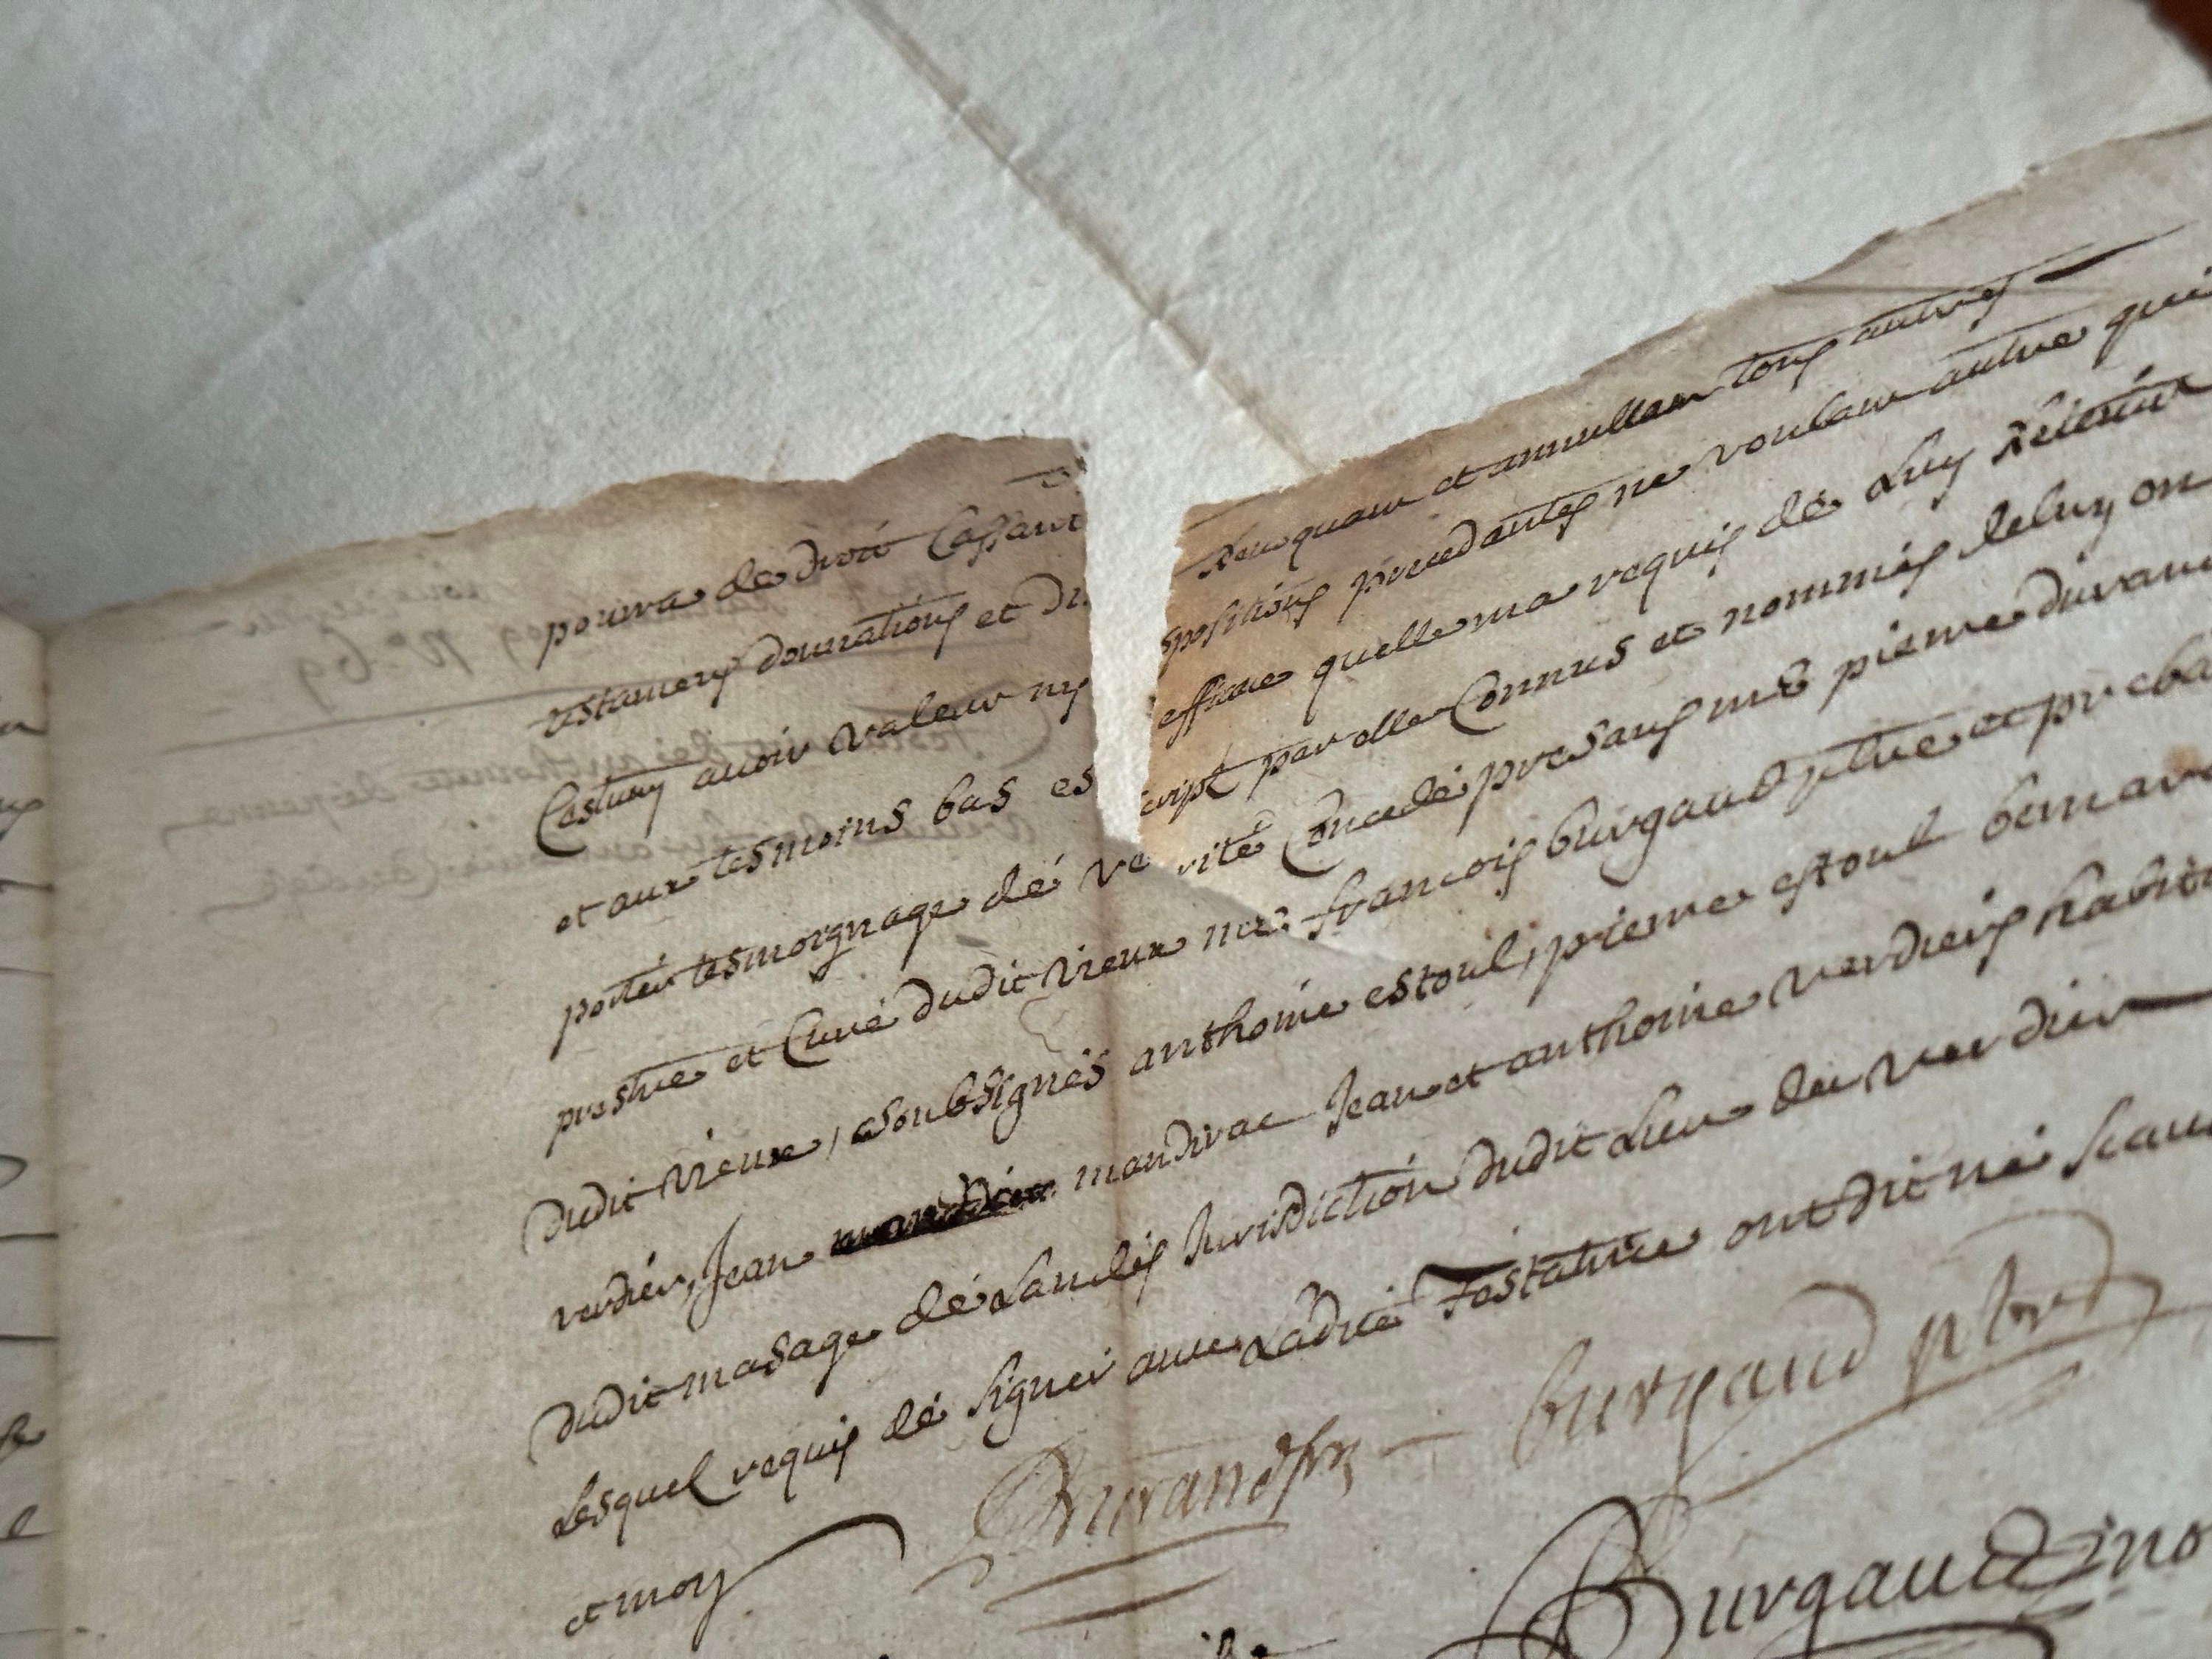 pourra de droit Cassant Reuoquant et annullant tous autres
testamens donnations et dispositions precedantes ne voulant autre que
Cestuy auoir valeur ny efficace quelle ma requis de Luy Retenir
et aux tesmoins bas escript par elle Connus et nommés deluy en
porter tesmoygnage dé verité Concedé presans mre pierre durand
prestre et Curé dudit vieux mre francois burgaud ptre et preba
dudit vieux, soubsignés anthoine estoul, pierre estoul bernard
verdier, Jean mandirac Jean et anthoine verdiers habita
dudit masage dé Landes Jurisdiction dudit Lieu du verdier
Lesquel requis dé signer auec Ladite Testatrice ont dit né scau
et moy
Durand ptre burgaud pbre
Burgaud no